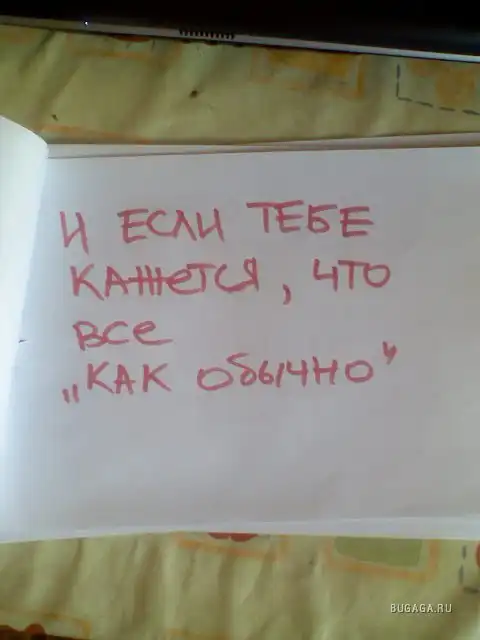 И ЕСЛИ ТЕБЕ
КАЖЕТСЯ, ЧТО
ВСЕ
„КАК ОБЫЧНО“
BUGAGA.RU